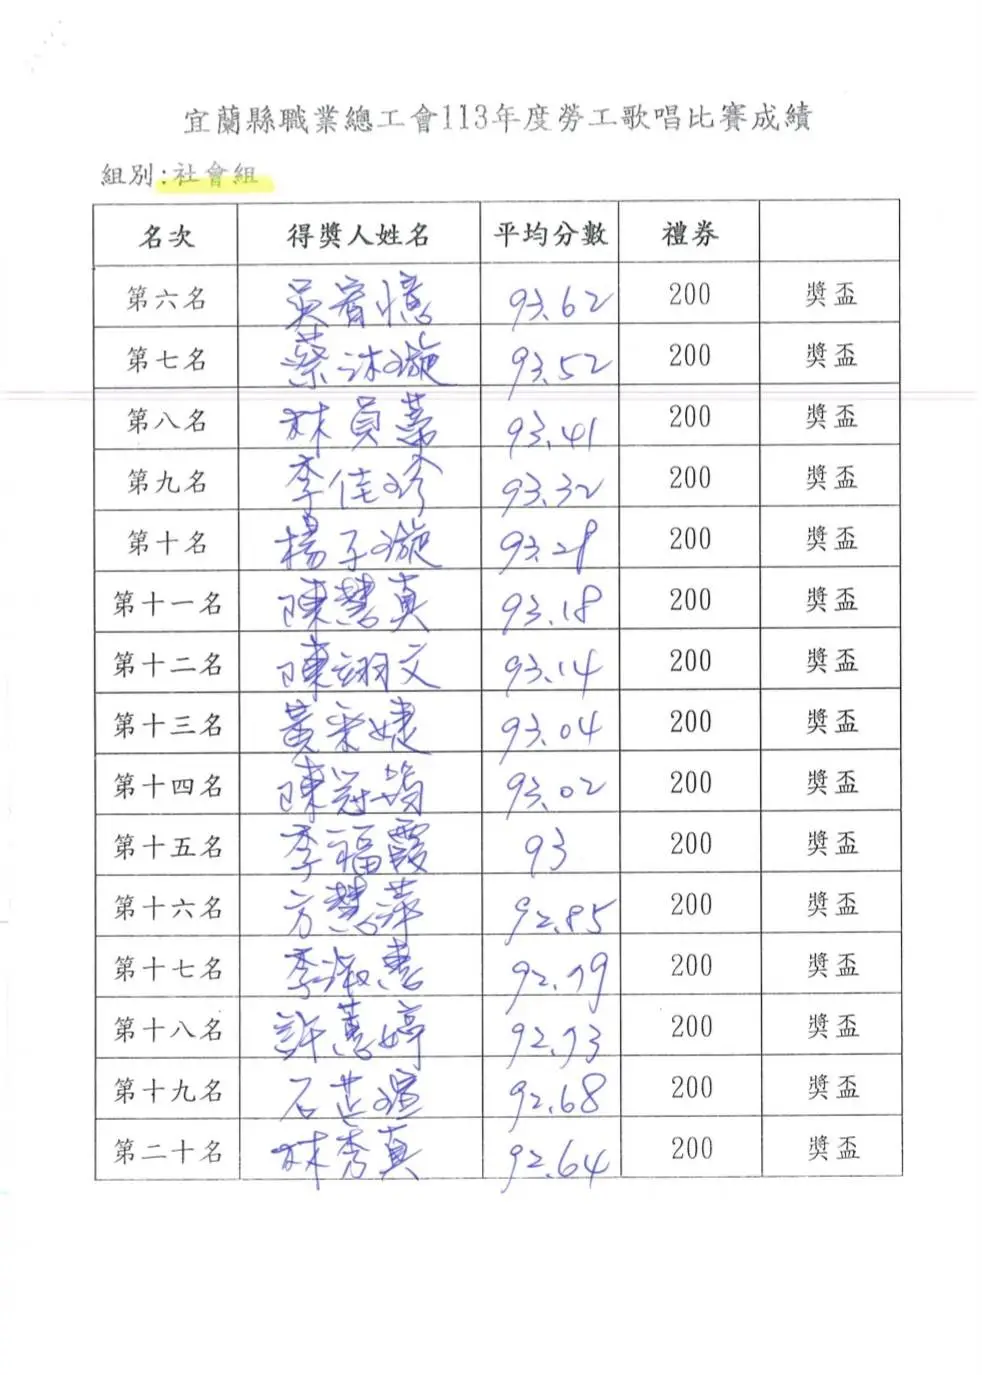 宜蘭縣職業總工會113年度勞工歌唱比賽成績
組別:社會組
名次 得獎人姓名 平均分數 禮券
第六名 吳宥憶 93.62 200 獎盃
第七名 蔡沐璇 93.52 200 獎盃
第八名 林員蓁 93.41 200 獎盃
第九名 李佳珍 93.32 200 獎盃
第十名 楊子璇 93.28 200 獎盃
第十一名 陳慧真 93.18 200 獎盃
第十二名 陳翊文 93.14 200 獎盃
第十三名 黃采婕 93.04 200 獎盃
第十四名 陳冠筠 93.02 200 獎盃
第十五名 李福霞 93 200 獎盃
第十六名 方慧萍 92.85 200 獎盃
第十七名 李淑惠 92.79 200 獎盃
第十八名 許蕙婷 92.73 200 獎盃
第十九名 石芷瑄 92.68 200 獎盃
第二十名 林秀真 92.64 200 獎盃